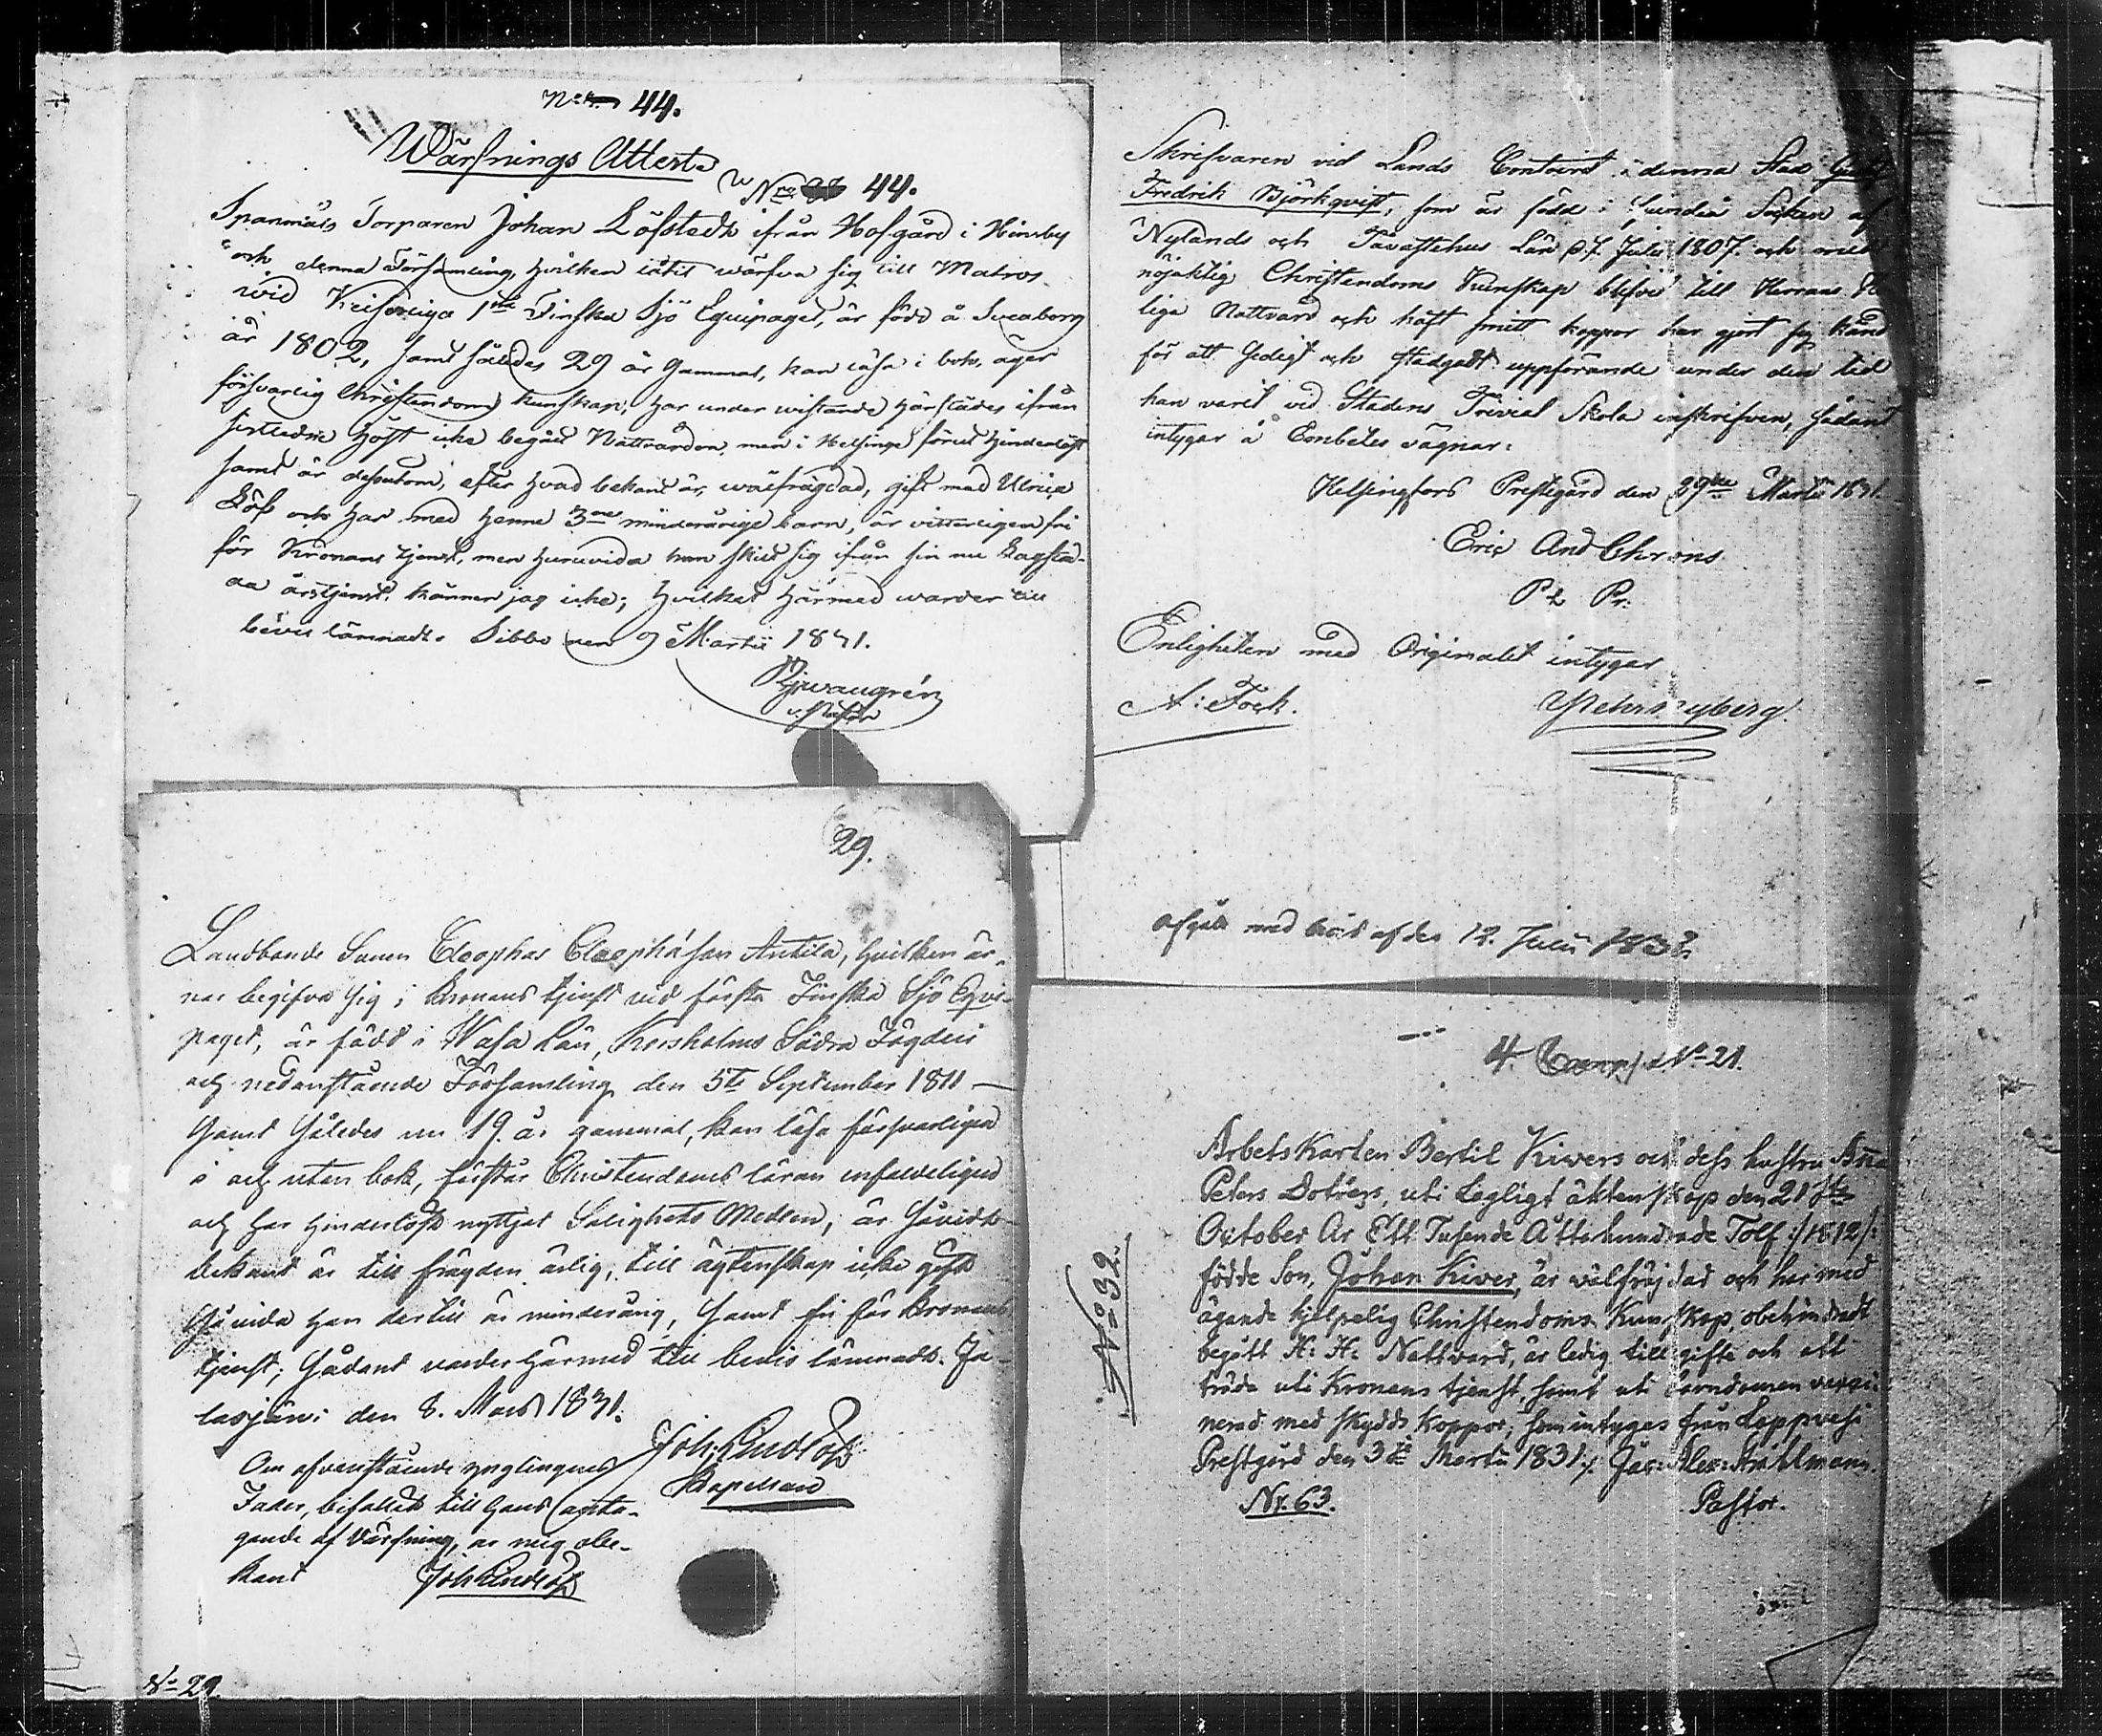 44.
Wärfnings Attest.
No 44.
Spanmåls Torparen Johan Löfstedt ifrån Hofgård i Hinsby
och denna Församling, hvilken låtit wärfva sig till Matros
wid Keiserliga 1sta Finska Sjö Equipaget, är född å Sveaborg
år 1802, samt således 29 år gammal, kan läsa i bok, äger
försvarlig Christendoms kunskap, har under wistande härstädes ifrån
sistledne höst icke begått Nattvarden, men i Helsinge förut hinderlöst
samt är dessutom, efter hvad bekant är, wälfrägdad, gift med Ulrica
Löf och har med henne 3ne minderåriga barn, är vitterligen fri
för Kronans tjenst, men huruvida han skilt sig ifrån sin nu
årstjenst, känner jag icke; hvilket härmed warder till
bevis lämnadt. Sibbo den 9 Martii 1831.
29.
Landbonde Sonen Cleophas Cleophasson Antila, hvilken är-
nar begifva sig i Kronans tjenst vid första Finska Sjö Equi-
paget, är född i Wasa Län, Korsholms Södra Fögderi
och nedanstående Församling den 5te September 1811 —
samt således nu 19 år gammal, kan läsa försvarligen
i och utan bok, förstår Christendoms läran enfaldeligen
och har hinderlöst nyttjat Salighets Medlen, är såvidt
bekant är till frägden ärlig, till ägtenskap icke gift
såvida han dertill är minderårig, samt fri för Kronans
tjenst; sådant varder härmed till bevis lämnadt. Ja-
lasjärvi den 8. Mars 1831.
Joh: Lindlöf
Kapellan
Om ofvanstående ynglingens
Fader, bifallit till hans anta-
gande af Värfning, är mig obe-
kant Joh Lindlöf
No 29.
Skrifvaren vid Lands Contoiret i denna Stad
Fredrik Björkqvist, som är född i Lundia Socken af
Nylands och Tavastehus Län d. 7. Julii 1807. och med
nöjaktig Christendoms Kunskap blifvit till Herrans He
liga Nattvard och haft smitt koppor har gjort sig känd
för ett sedigt och stadgadt uppförande under den tid
han varit vid Stadens Trivial Skola inskrifven, sådant
intygar å Embetes vägnar.
Helsingfors Prestegård den Martii 1831.
Eric And Chrons
Pr.
Enligheten med Originalet intygar
A: Fock.
afgått med den 12. Junii
4. Comp. No 21.
No 32.
Arbetskarlen Bertil Kivers och dess hustru Anna
Peters Dotters, uti Lagligt äktenskap den 21ste
October År Ett Tusende Åttahundrade Tolf :/1812/:
födde Son, Johan Kiver, är wälfräjdad och har med
ägande hjelpelig Christendoms Kunskap obehindradt
begått H: H: Nattvard, är ledig till gifte och att
träda uti Kronans tjenst, samt uti barndomen vacci-
nerad med skydds koppor, som intyges från Lappvesi
Prestgård den 3de Martii 1831. Jac: Alex: Stråhlmann.
Nr. 63. Pastor.